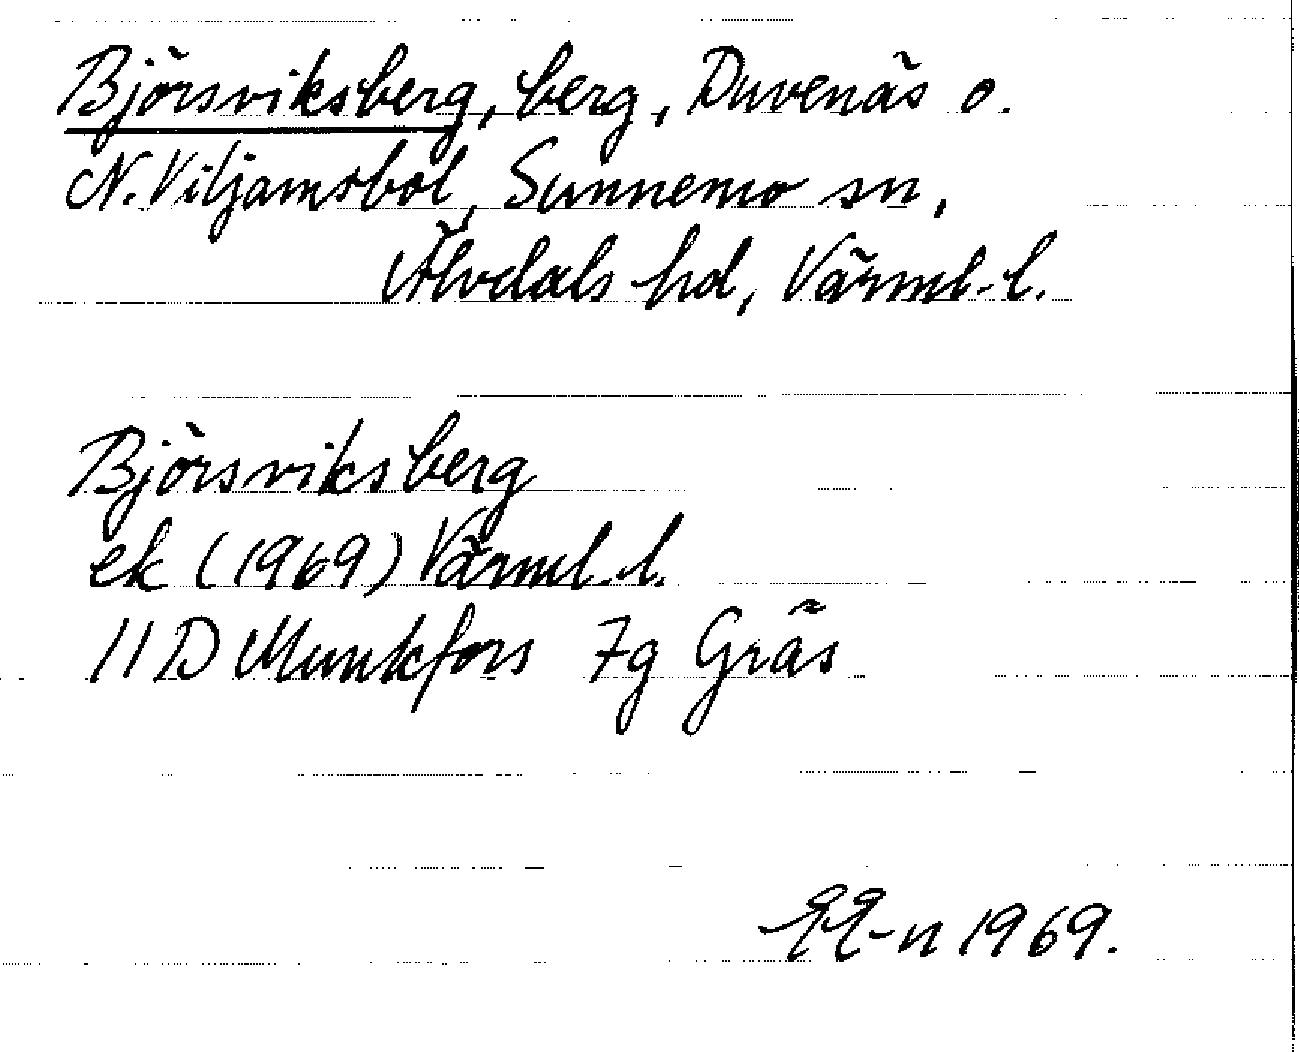 Björsviksberg, berg, Duvenäs o.
N. Viljamsbol, Sunnemo sn,
Älvdals hd, Värml. l.
Björsviksberg
ek (1969) Värml. l.
11D Munkfors 7g Gräs
EE-n 1969.